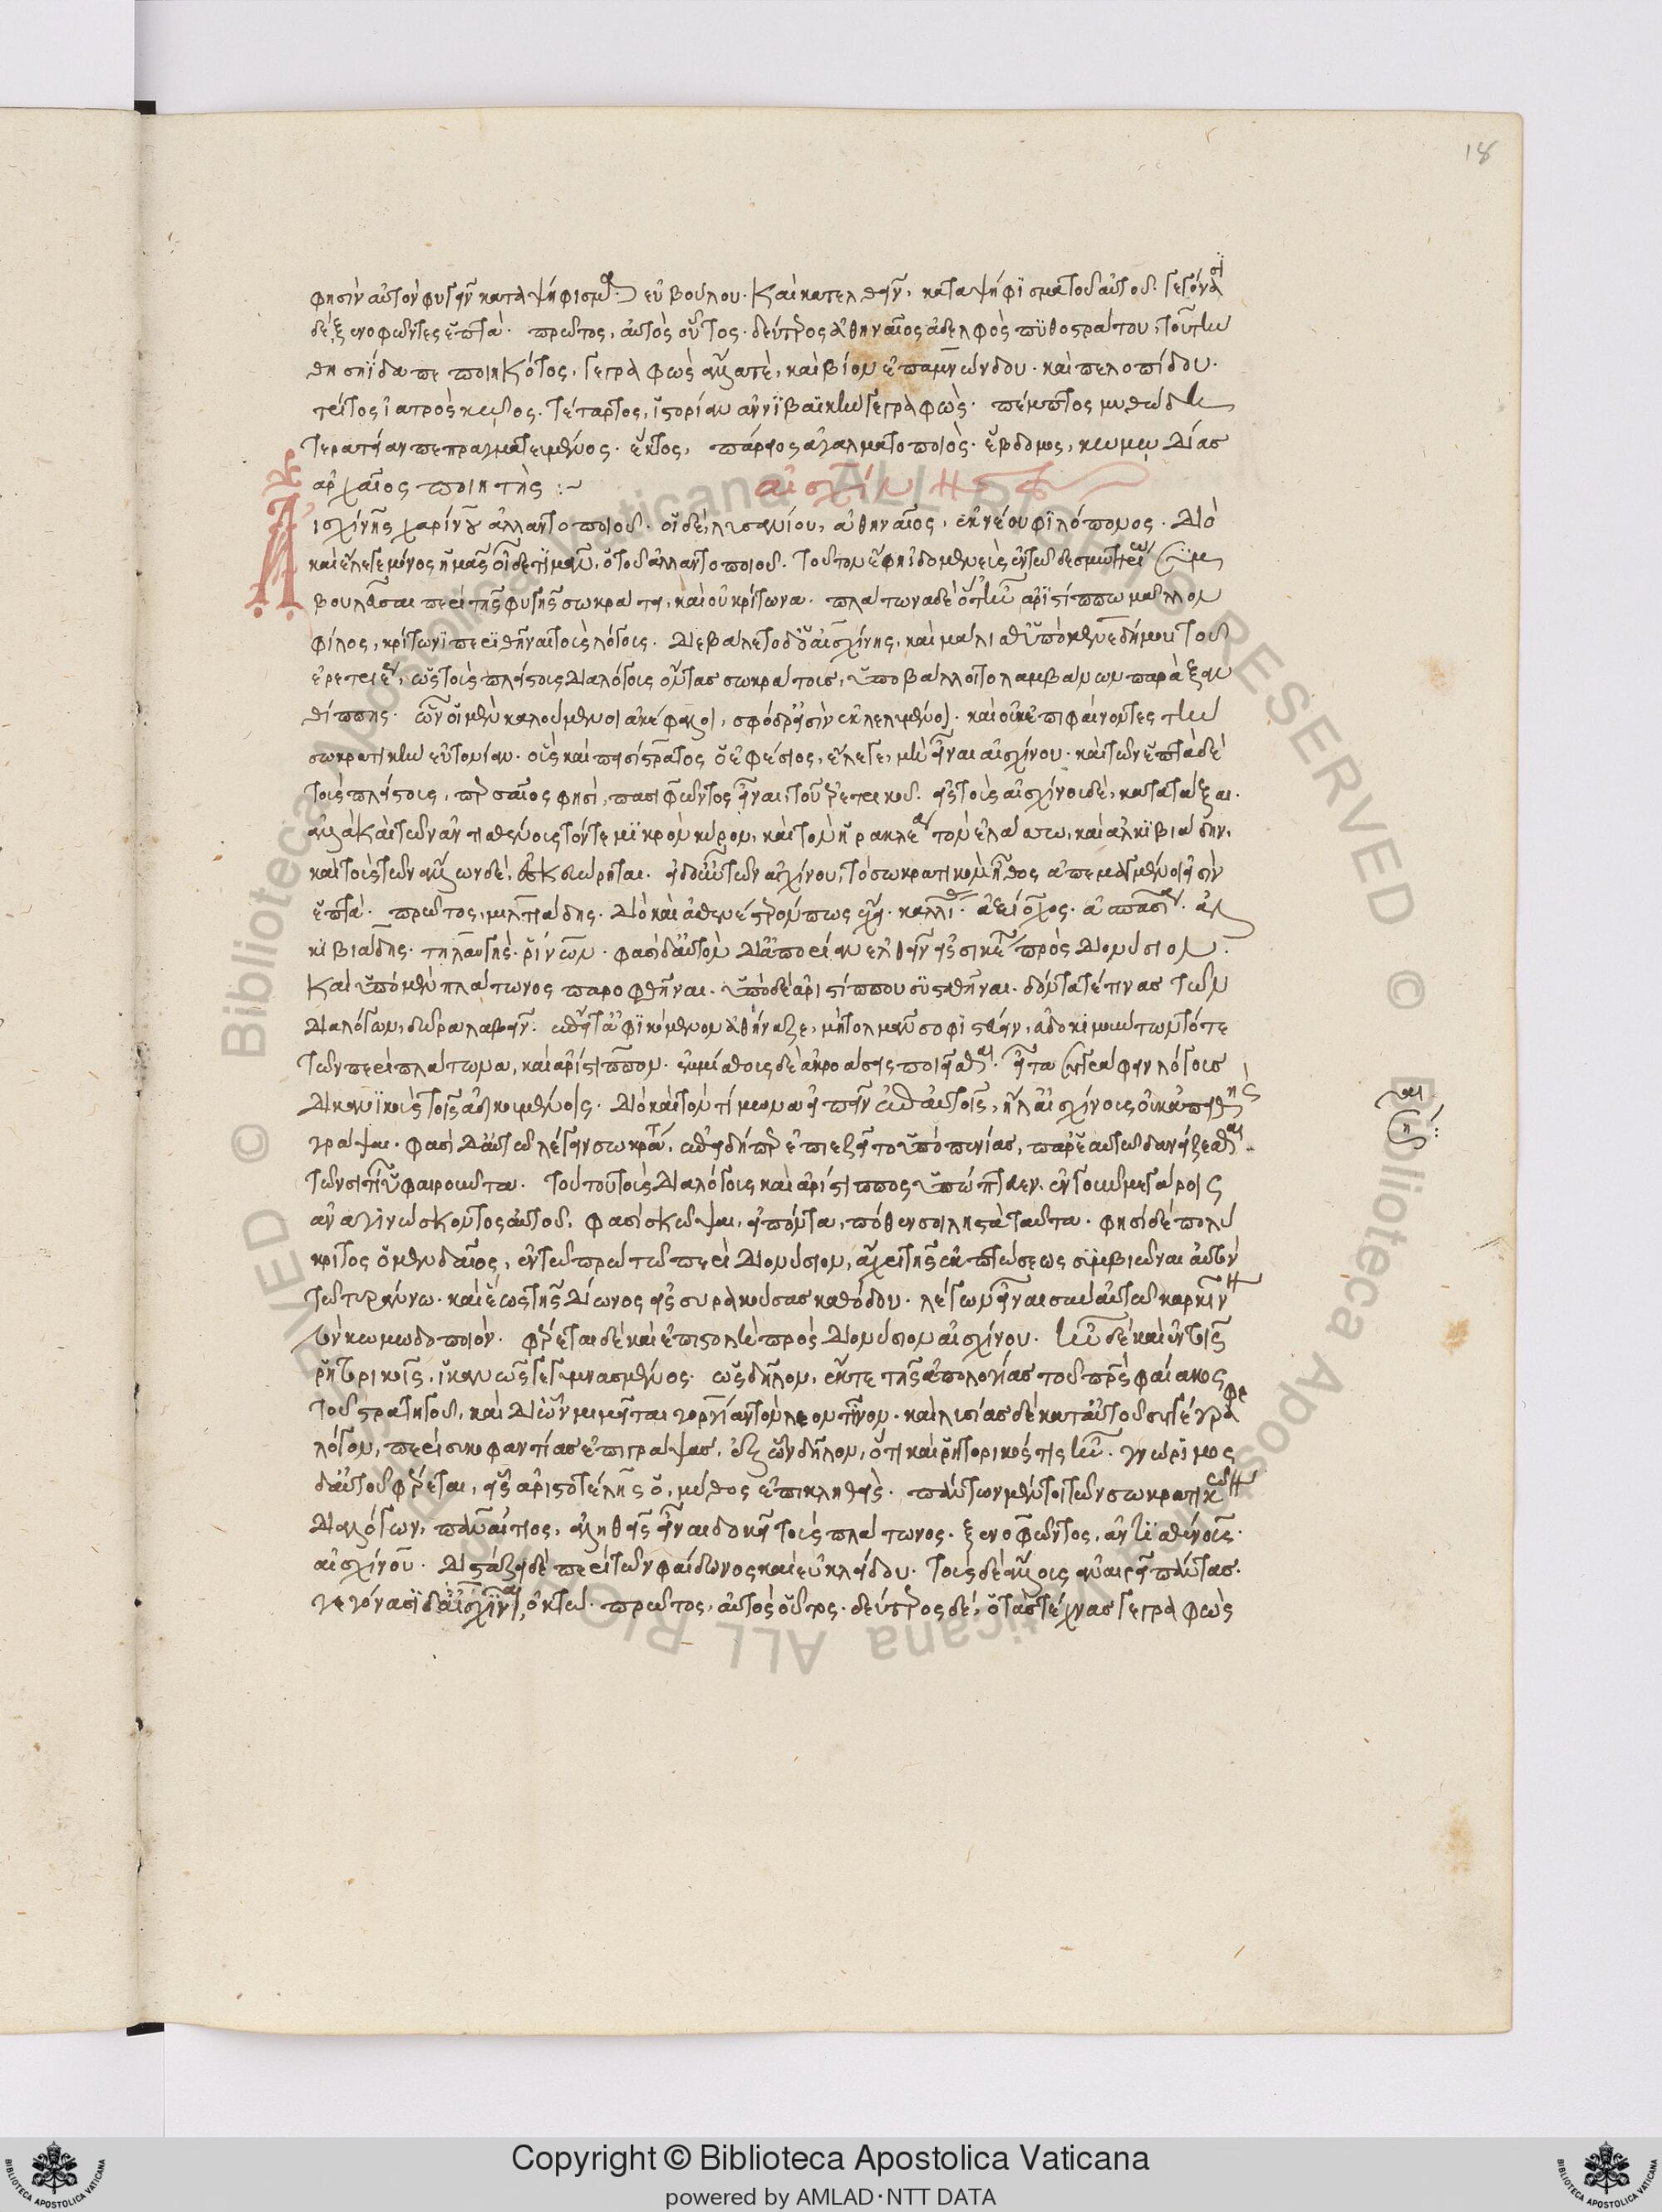 18
φησὶν αὐτὸν φυγεῖν κατὰ ψήφισμα εὐβούλου. καὶ κατελθεῖν, κατὰ ψήφισμα τοῦ αὐτοῦ. γεγόνασι
δὲ ξενοφῶντες ἑπτά. πρῶτος, αὐτὸς οὗτος. δεύτερος ἀθηναῖος ἀδελφὸς πυθοστράτου, τοῦ τὴν
θησηίδα πεποιηκότος, γεγραφὼς ἄλλα τὲ, καὶ βίον ἐπαμινώνδου. καὶ πελοπίδου.
τρίτος ἰατρὸς κῷος. τέταρτος, ἱστορίαν ἀννιβαϊκὴν γεγραφὼς. πέμπτος μυθώδη
τερατείαν πεπραγματευμένος. ἕκτος, πάριος ἀγαλματοποιὸς. ἕβδομος, κωμῳδίας
ἀρχαίας ποιητὴς :~ αἰσχίνης
Αἰσχίνης χαρίνου ἀλλαντοποιοῦ. οἱ δὲ, λυσανίου, ἀθηναῖος, ἐκ νέου φιλόπονος. διὸ
καὶ ἔλεγε μόνος ἡμᾶς οἶδε τιμᾶν, ὁ τοῦ ἀλλαντοποιοῦ. τοῦτον ἔφη ἰδομενεὺς ἐν τῷ δεσμωτηρίῳ συμ
βουλεῦσαι περὶ τῆς φυγῆς σωκράτει, καὶ οὐ κρίτωνα. πλάτωνα δὲ ὅτι ἦν ἀριστίππω μᾶλλον
φίλος, κρίτωνι περιθεῖναι τοὺς λόγους. διεβάλετο δ' ὁ αἰσχίνης, καὶ μάλισθ' ὑπὸ μενεδήμου τοῦ
ἐρετριέως, ὡς τοὺς πλείστους διαλόγους ὄντας σωκράτους, ὑποβάλλοιτο λαμβάνων παρὰ ξαν
θίππης. ὧν οἱ μὲν καλούμενοι ἀκέφαλοι, σφόδρ' εἰσὶν ἐκλελυμένοι. καὶ οὐκ ἐπιφαίνοντες τὴν
σωκρατικὴν εὐτονίαν. οὓς καὶ πεισίστρατος ὁ ἐφέσιος, ἔλεγε, μὴ εἶναι αἰσχίνου. καὶ τῶν ἑπτὰ δὲ
τοὺς πλείστους, περσαῖος φησὶ, πασιφῶντος εἶναι, τοῦ ἐρετρικοῦ. εἰς τοὺς αἰσχίνου δὲ, κατατάξαι.
ἀλλὰ καὶ τῶν ἀντισθένους τόν τε μικρὸν κῦρον, καὶ τὸν ἡρακλέα τὸν ἐλάσσω, καὶ ἀλκιβιάδην,
καὶ τοὺς τῶν ἄλλων δὲ, ἐσκευώρηται. οἱ δ' οὖν τῶν αἰσχίνου, τὸ σωκρατικὸν ἦθος ἀπομεμαγμένοι εἰσὶν
ἑπτά. πρῶτος, μιλτιάδης. διὸ καὶ ἀσθενέστερόν πως ἔχει. καλλίας. ἀξίοχος. ἀσπασία. ἀλ
κιβιάδης. τηλαύγης. ῥίνων. φασὶ δ' αὐτὸν δι' ἀπορίαν ἐλθεῖν εἰς σικελίαν πρὸς διονύσιον.
καὶ ὑπὸ μὲν πλάτωνος παροφθῆναι. ὑπὸ δὲ ἀριστίππου συσταθῆναι. δόντα τέ τινας τῶν
διαλόγων, δῶρα λαβεῖν. ἔπειτ' ἀφικόμενον ἀθήναζε, μὴ τολμᾶν σοφιστεύειν, εὐδοκιμούντων τότε
τῶν περὶ πλάτωνα, καὶ ἀρίστιππον. ἐμμίσθους δὲ ἀκροάσεις ποιεῖσθαι. εἶτα συγγράφειν λόγους
δικανικοὺς τοῖς ἀδικουμένοις. διὸ καὶ τὸν τίμωνα εἰπεῖν ἐπ' αὐτοῖς, ἥ τ' αἰσχίνου οὐκ ἀπιθὴς
γράψαι. φασὶ δ' αὐτῷ λέγειν σωκράτη, ἐπειδήπερ ἐπιέζετο ὑπὸ πενίας, παρ' ἑαυτοῦ δανείζεσθαι.
τῶν σιτίων ὑφαιροῦντα. τούτου τοὺς διαλόγους καὶ ἀρίστιππος ὑπώπτευεν. ἐν γοῦν μεγάροις
ἀναγινώσκοντος αὐτοῦ, φασὶ σκῶψαι, εἰπόντα, πόθεν σοι ληστὰ ταῦτα. φησὶ δὲ πολύ
κριτος ὁ μενδαῖος, ἐν τῷ πρώτω περὶ διονύσιον, ἄχρι τῆς ἐκπτώσεως συμβιῶναι αὐτὸν
τῷ τυράννω. καὶ ἕως τῆς δίωνος εἰς συρακούσας καθόδου. λέγων εἶναι σὺν αὐτῷ καρκίνον
τὸν κωμωδοποιόν. φέρεται δὲ καὶ ἐπιστολὴ πρὸς διονύσιον αἰσχίνου. ἦν δὲ καὶ ἐν τοῖς
ῥητορικοῖς, ἱκανῶς γεγυμνασμένος. ὡς δῆλον, ἔκ τε τῆς ἀπολογίας τοῦ πατρὸς φαίακος
τοῦ στρατηγοῦ, καὶ δι' ὧν μιμεῖται γοργίαν τὸν λεοντῖνον. καὶ λυσίας δὲ κατ' αὐτοῦ συγγέγραφε
λόγον, περὶ συκοφαντίας ἐπιγράψας. ἐξ ὧν δῆλον, ὅτι καὶ ῥητορικός τις ἦν. γνώριμος
δ' αὐτοῦ φέρεται, εἷς ἀριστοτέλης ὁ, μῦθος ἐπικληθεὶς. πάντων μέντοι τῶν σωκρατικῶν
διαλόγων, παναίτιος, ἀληθεῖς εἶναι δοκεῖ τοὺς πλάτωνος. ξενοφῶντος, ἀντισθένους.
αἰσχίνου. διστάζει δὲ περὶ τῶν φαίδωνος καὶ εὐκλείδου. τοὺς δὲ ἄλλους ἀναιρεῖ πάντας.
γεγόνασι δ' αἰσχίναι, ὀκτώ. πρῶτος, αὐτὸς οὗτος. δεύτερος δὲ, ὁ τὰς τέχνας γεγραφὼς
© Biblioteca Apostolica Vaticana ALL RIGHTS RESERVED
Copyright © Biblioteca Apostolica Vaticana
powered by AMLAD·NTT DATA